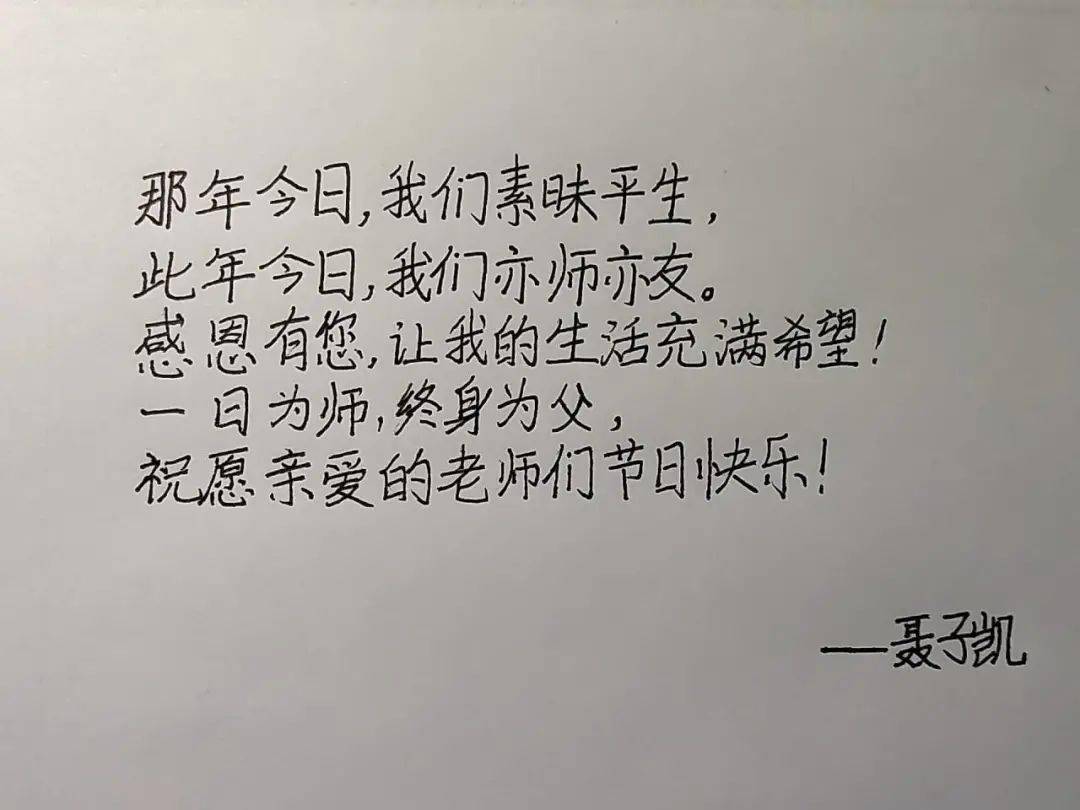 那年今日,我们素昧平生,
此年今日,我们亦师亦友。
感恩有您,让我的生活充满希望!
一日为师,终身为父,
祝愿亲爱的老师们节日快乐!
——聂子凯